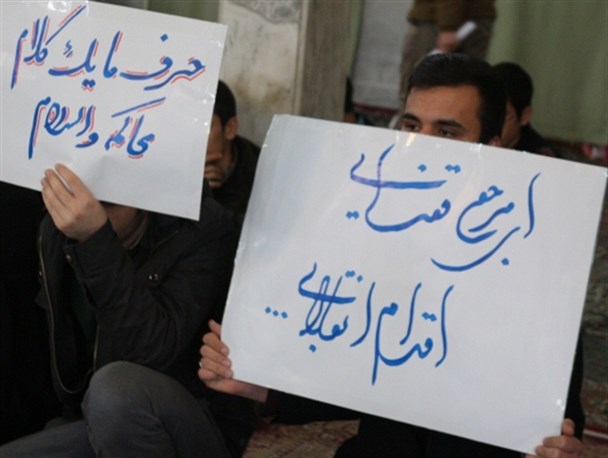 حرف ما یک کلام
محاکمه والسلام
ای مرجع قضایی
اقدام انقلابی...